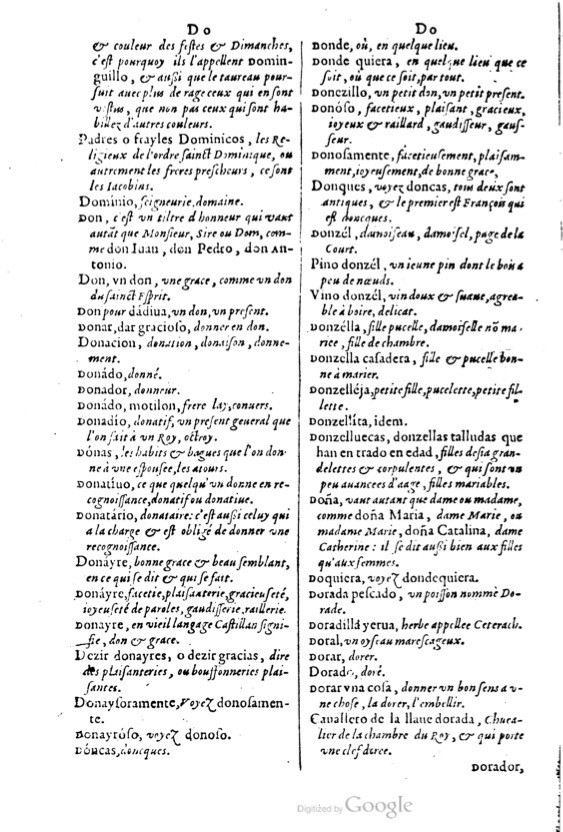 Do
& couleur des festes & Dimanches,
c'est pourquoy ils l'appellent Domin-
guillo, & außi que le taureau pour-
suit auec plus de rage ceux qui en sont
vestus, que non pas ceux qui sont ha-
billez d'autres couleurs.
Padres o frayles Dominicos, les Re-
ligieux de l'ordre sainct Dominique, ou
autrement les freres prescheurs, ce sont
les Iacobins.
Dominio, seigneurie, domaine.
Don, c'est vn tiltre d'honneur qui vaut
autãt que Monsieur, Sire ou Dom, com-
me don Iuan, don Pedro, don An-
tonio.
Don, vn don, vne grace, comme vn don
du sainct Esprit.
Don pour dádiua, vn don, vn present.
Donar, dar gracioso, donner en don.
Donacion, donation, donaison, donne-
ment.
Donádo, donné.
Donador, donneur.
Donádo, motilon, frere lay, conuers.
Donadío, donatif, vn present general que
l'on fait à vn Roy, octroy.
Dónas, les habits & bagues que l'on don-
ne à vne espousee, les atours.
Donatíuo, ce que quelqu'vn donne en re-
cognoissance, donatif ou donatiue.
Donatário, donataire: c'est außi celuy qui
a la charge & est obligé de donner vne
recognoissance.
Donáyre, bonne grace & beau semblant,
en ce qui se dit & qui se fait.
Donáyre, facetie, plaisanterie, gracieuseté,
ioyeuseté de paroles, gaudisserie, raillerie.
Donayre, en vieil langage Castillan signi-
fie, don & grace.
Dezir donayres, o dezir gracias, dire
des plaisanteries, ou bouffonneries plai-
santes.
Donaysoramente, Voyez donosamen-
te.
Donayróso, voyez donoso.
Dóncas, doncques.
Do
Donde, où, en quelque lieu.
Donde quiera, en quelque lieu que ce
soit, où que ce soit, par tout.
Donezillo, vn petit don, vn petit present.
Donóso, facetieux, plaisant, gracieux,
ioyeux & raillard, gaudisseur, gaus-
seur.
Donosamente, facetieusement, plaisam-
ment, ioyeusement, de bonne grace,
Donques, voyez doncas, tous deux sont
antiques, & le premier est François qui
est doncques.
Donzél, damoiseau, damoisel, page de la
Court.
Pino donzél, vn ieune pin dont le bois a
peu de nœuds.
Vino donzél, vin doux & suaue, agrea-
ble à boire, delicat.
Donzélla, fille pucelle, damoiselle nõ ma-
riee, fille de chambre.
Donzella casadera, fille & pucelle bon-
ne à marier.
Donzelléja, petite fille, pucelette, petite fil-
lette.
Donzellíta, idem.
Donzelluecas, donzellas talludas que
han en trado en edad, filles desia gran-
delettes & corpulentes, & qui sont vn
peu auancees d'aage, filles mariables.
Doña, vaut autant que dame ou madame,
comme doña Maria, dame Marie, ou
madame Marie, doña Catalina, dame
Catherine: il se dit außi bien aux filles
qu'aux femmes.
Doquiera, voyez dondequiera.
Dorada pescado, vn poisson nommé Do-
rade.
Doradilla yerua, herbe appellee Ceterach.
Doral, vn oyseau marescageux.
Dorar, dorer.
Dorado, doré.
Dorar vna cosa, donner vn bon sens a v-
ne chose, la dorer, l'embellir.
Cauallero de la llaue dorada, Cheua-
lier de la chambre du Roy, & qui porte
vne clef doree.
Dorador,
Digitized by Google